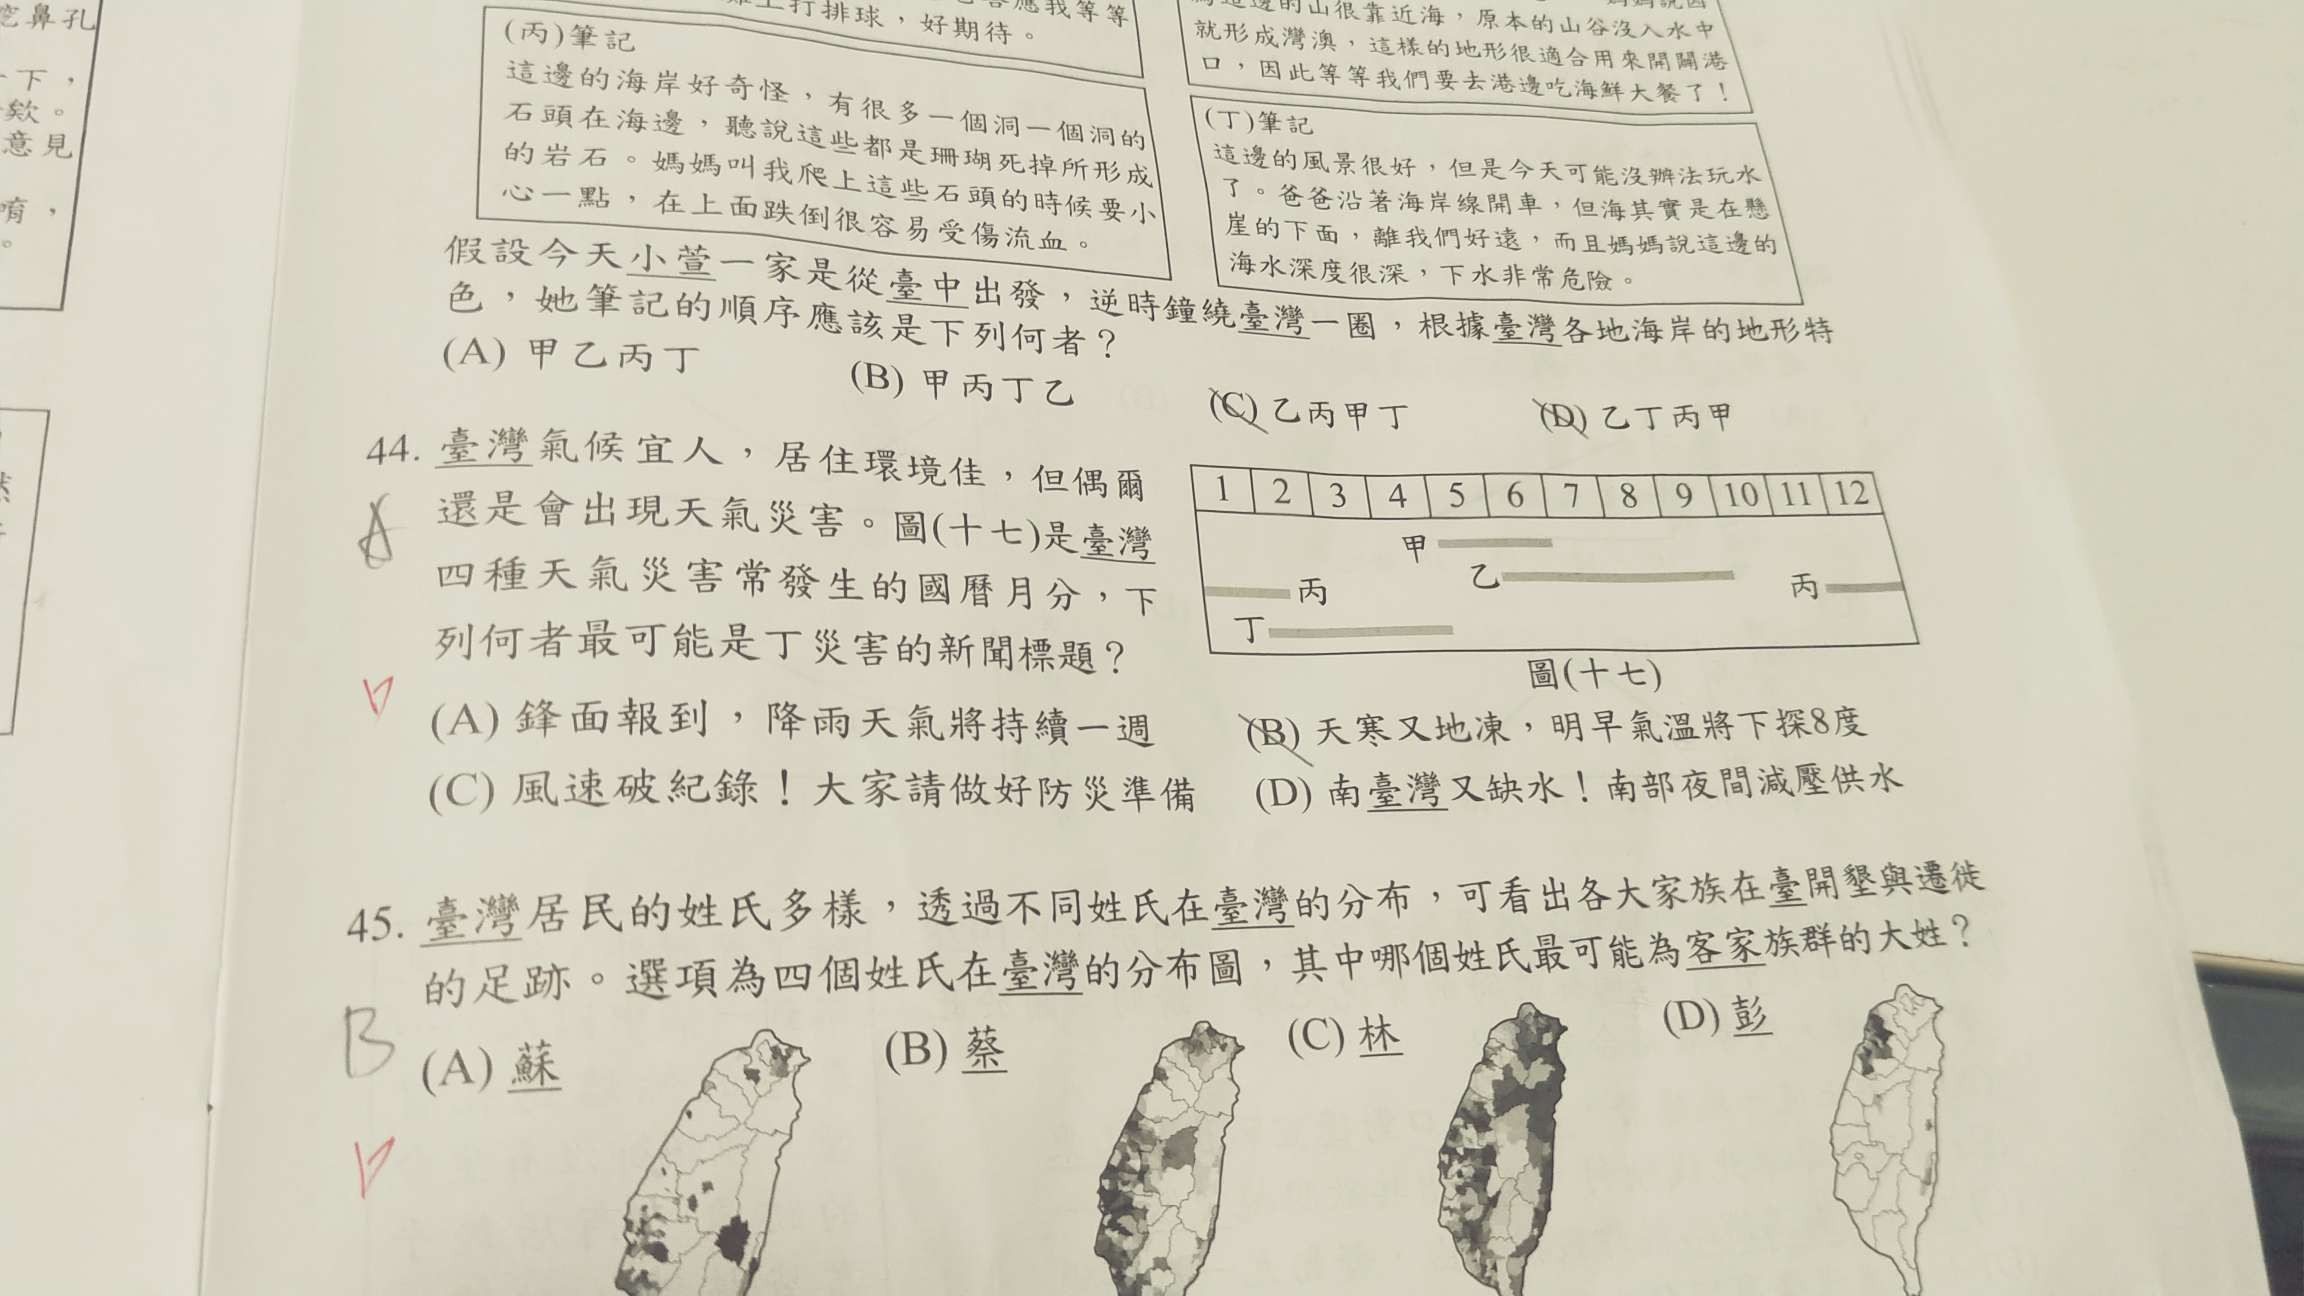 挖鼻孔
一下，
欸。
意見
唷，
。
上打排球，好期待。
應我等等
(丙)筆記
這邊的海岸好奇怪，有很多一個洞一個洞的
石頭在海邊，聽說這些都是珊瑚死掉所形成
的岩石。媽媽叫我爬上這些石頭的時候要小
心一點，在上面跌倒很容易受傷流血。
這邊的山很靠近海，原本的山谷沒入水中
就形成灣澳，這樣的地形很適合用來開闢港
口，因此等等我們要去港邊吃海鮮大餐了！
(丁)筆記
這邊的風景很好，但是今天可能沒辦法玩水
了。爸爸沿著海岸線開車，但海其實是在懸
崖的下面，離我們好遠，而且媽媽說這邊的
海水深度很深，下水非常危險。
假設今天小萱一家是從臺中出發，逆時鐘繞臺灣一圈，根據臺灣各地海岸的地形特
色，她筆記的順序應該是下列何者？
(A) 甲乙丙丁 (B) 甲丙丁乙 (C) 乙丙甲丁 (D) 乙丁丙甲
44. 臺灣氣候宜人，居住環境佳，但偶爾
還是會出現天氣災害。圖(十七)是臺灣
四種天氣災害常發生的國曆月分，下
列何者最可能是丁災害的新聞標題？
A
1 2 3 4 5 6 7 8 9 10 11 12
甲
乙
丙 丙
丁
圖(十七)
(A) 鋒面報到，降雨天氣將持續一週 (B) 天寒又地凍，明早氣溫將下探8度
(C) 風速破紀錄！大家請做好防災準備 (D) 南臺灣又缺水！南部夜間減壓供水
45. 臺灣居民的姓氏多樣，透過不同姓氏在臺灣的分布，可看出各大家族在臺開墾與遷徙
的足跡。選項為四個姓氏在臺灣的分布圖，其中哪個姓氏最可能為客家族群的大姓？
B
(A) 蘇 (B) 蔡 (C) 林 (D) 彭